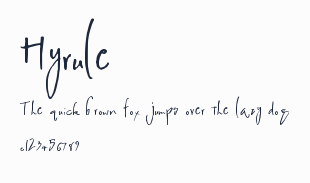 Hyrule
The quick brown fox jumps over the lazy dog
0123456789